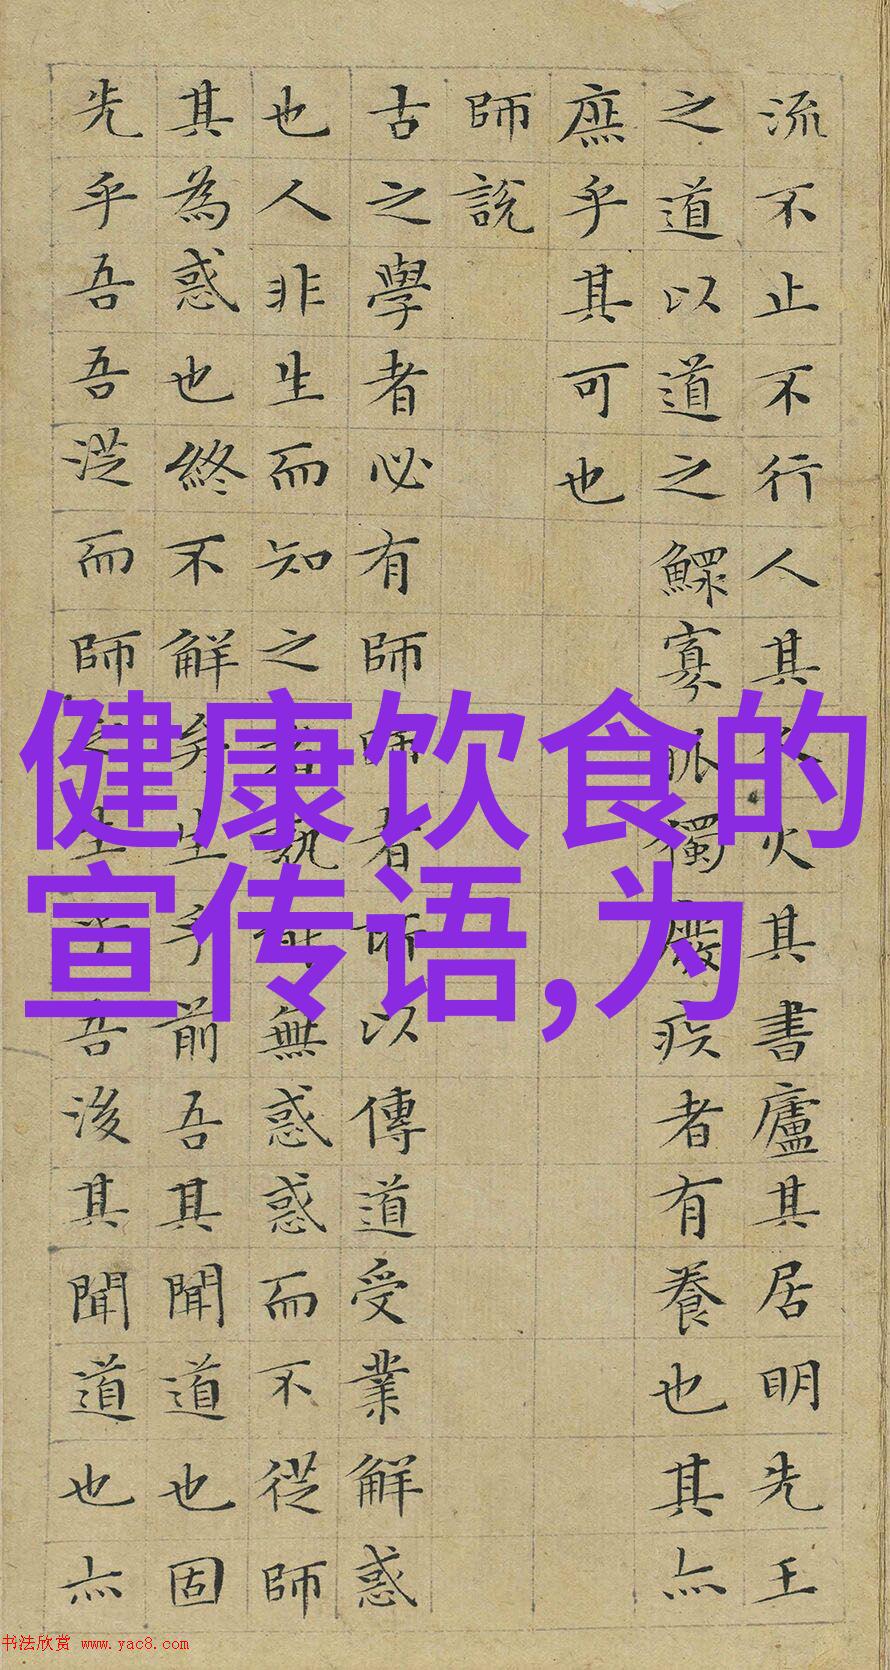 流不止不行人其人火其書廬其居明先王
之道以道之鰥寡孤獨廢疾者有養也其亦
庶乎其可也
師說
古之學者必有師師者所以傳道受業解惑
也人非生而知之者孰能無惑惑而不從師
其為惑也終不解矣生乎前吾其聞道也固
先乎吾吾從而師之生乎吾後其聞道也亦
健康饮食的
宣传语,为
书法欣赏 www.yac8.com